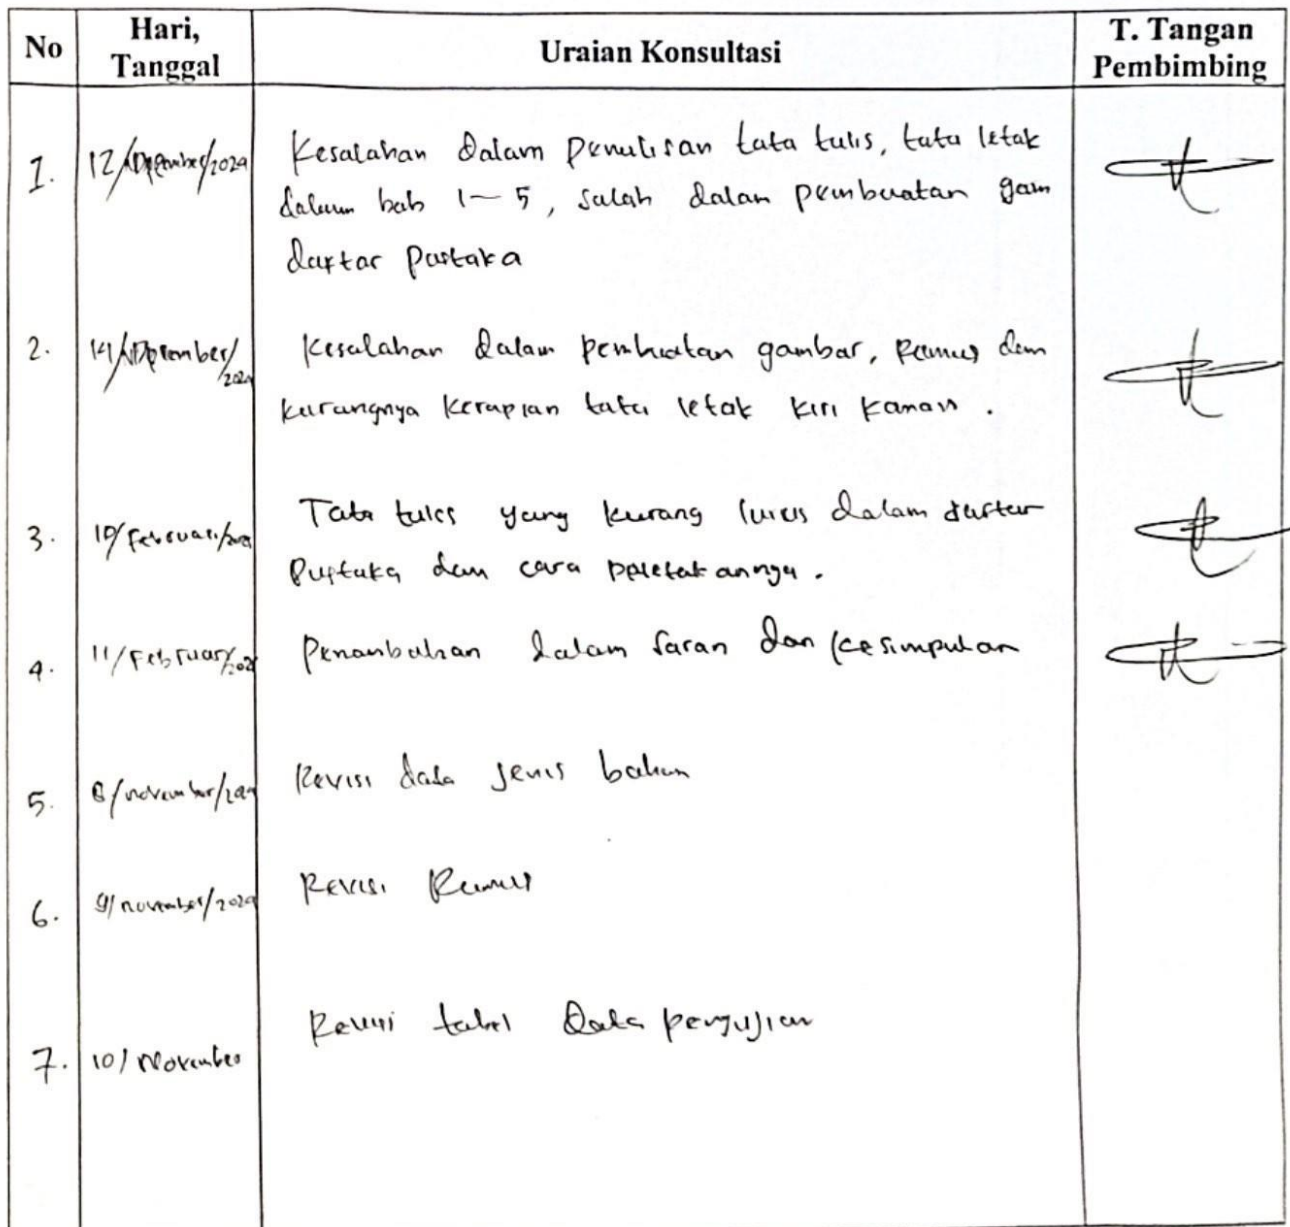 No
Hari,
Tanggal
Uraian Konsultasi
T. Tangan
Pembimbing
1.
12/Desember/2024
Kesalahan dalam penulisan tata tulis, tata letak
dalam bab 1-5, salah dalam pembuatan gam
daftar pustaka
2.
14/Desember/
2024
Kesalahan dalam pembuatan gambar, Rumus dan
kurangnya kerapian tata letak kiri kanan.
3.
10/Februari/
Tata tulis yang kurang lurus dalam daftar
Pustaka dan cara peletakannya.
4.
11/Februari/
Penambahan dalam saran dan kesimpulan
5.
8/november/
Revisi data jenis bahan
6.
9/november/2024
Revisi Rumus
7.
10/November
Revisi tabel Data pengujian